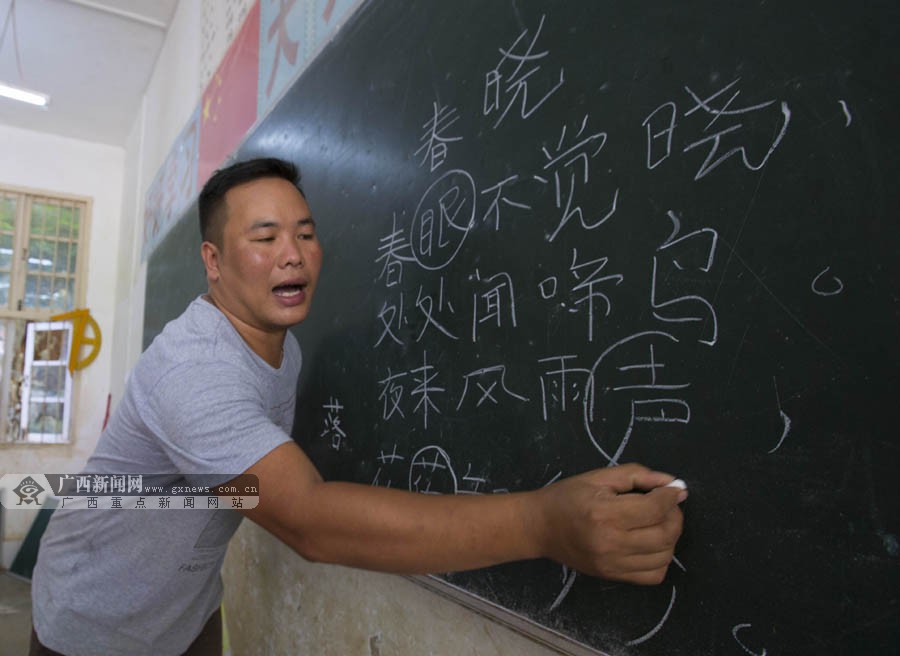 春晓
晓
春眠不觉
处处闻啼鸟
夜来风雨声
花落
落
广西新闻网 www.gxnews.com.cn
广西重点新闻网站